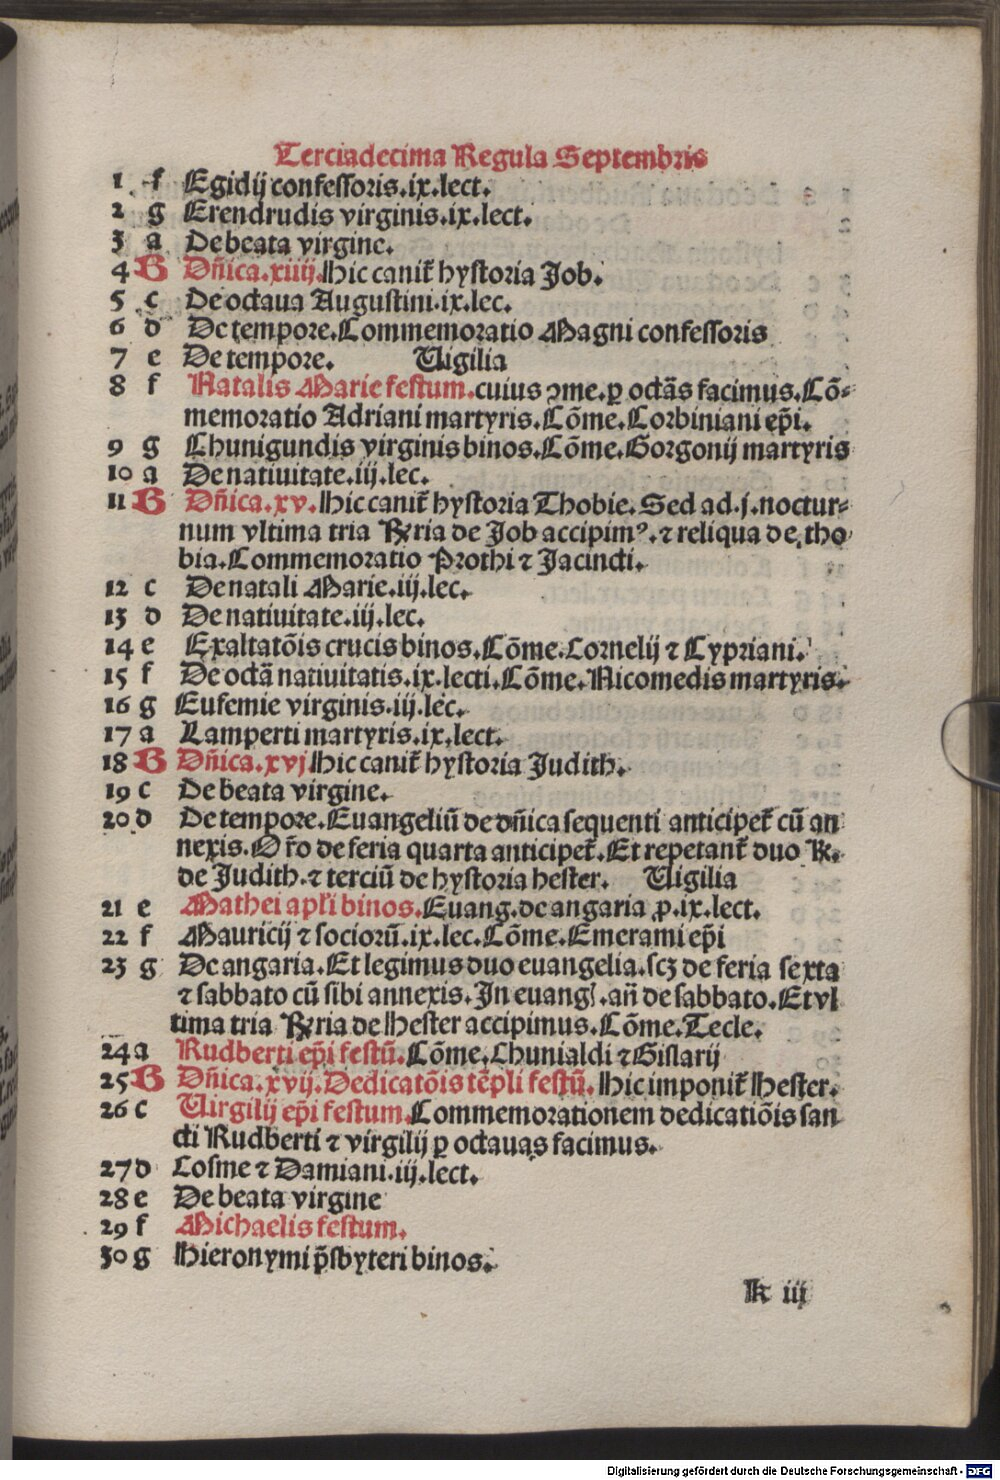 Terciadecima Regula Septembris
1 f Egidij confessoris.ix.lect.
2 g Erendrudis virginis.ix.lect.
3 a De beata virgine.
4 B Dn̄ica.xiiij.Hic canit᷑ hystoria Job.
5 c De octaua Augustini.ix.lec.
6 d De tempore.Commemoratio Magni confessoris
7 e De tempore. Uigilia
8 f Natalis Marie festum.cuius ꝯme.ꝑ octās facimus.Cō-
memoratio Adriani martyris.Cōme.Corbiniani ep̄i.
9 g Chunigundis virginis binos.Cōme.Gorgonij martyris
10 a De natiuitate.iij.lec.
11 B Dn̄ica.xv.Hic canit᷑ hystoria Thobie.Sed ad.j.noctur-
num vltima tria Rx̄ria de Job accipimꝰ.⁊ reliqua de tho
bia.Commemoratio Prothi ⁊ Jacincti.
12 c De natali Marie.iij.lec.
13 d De natiuitate.iij.lec.
14 e Exaltatōis crucis binos.Cōme.Cornelij ⁊ Cypriani.
15 f De octā natiuitatis.ix.lecti.Cōme.Nicomedis martyris.
16 g Eufemie virginis.iij.lec.
17 a Lamperti martyris.ix.lect.
18 B Dn̄ica.xvj Hic canit᷑ hystoria Judith.
19 c De beata virgine.
20 d De tempore.Euangeliū de dn̄ica sequenti anticipet᷑ cū an
nexis.O f̄o de feria quarta anticipet᷑.Et repetant᷑ duo ℞.
de Judith.⁊ terciū de hystoria hester. Uigilia
21 e Mathei apl̄i binos.Euang.de angaria ꝓ.ix.lect.
22 f Mauricij ⁊ sociorū.ix.lec.Cōme.Emerami ep̄i
23 g De angaria.Et legimus duo euangelia.scꝫ de feria sexta
⁊ sabbato cū sibi annexis.In euangl.an̄ de sabbato.Et vl
tima tria Rx̄ria de Hester accipimus.Cōme.Tecle.
24 a Rudberti ep̄i festū.Cōme.Chunialdi ⁊ Gislarij
25 B Dn̄ica.xvij.Dedicatōis tēpli festū.Hic imponit᷑ Hester.
26 c Uirgilij ep̄i festum.Commemorationem dedicatiōis san
cti Rudberti ⁊ virgilij ꝑ octauas facimus.
27 d Cosme ⁊ Damiani.iij.lect.
28 e De beata virgine
29 f Michaelis festum.
30 g Hieronymi p̄sbyteri binos.
k iij
Digitalisierung gefördert durch die Deutsche Forschungsgemeinschaft - DFG